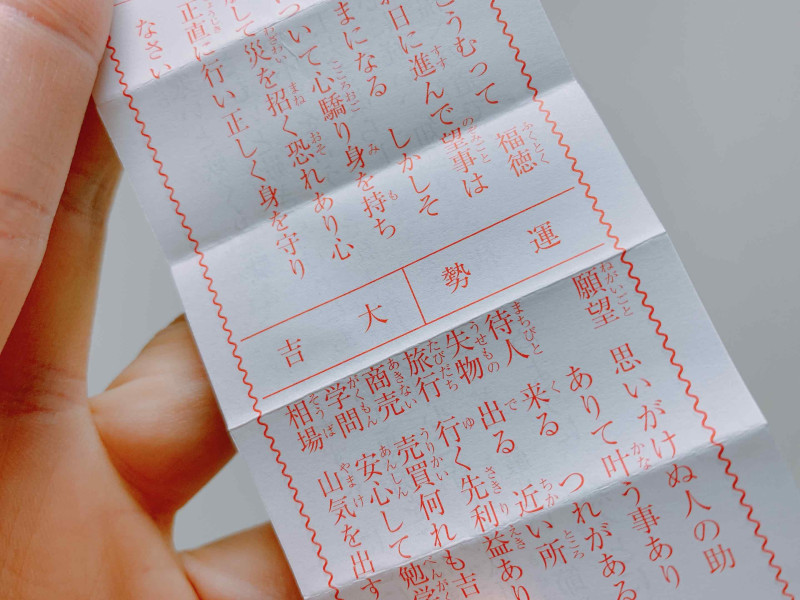 うむって 福徳
日に進んで望事は
まになる しかしそ
ついて心驕り身を持ち
して災を招く恐れあり心
正直に行い正しく身を守り
なさい
運勢
大吉
願望 思いがけぬ人の助
ありて叶う事あり
待人 来る つれがある
失物 出る 近い所
旅行 行く先利益あり
商売 売買何れも吉
学問 安心して勉学
相場 山気を出す